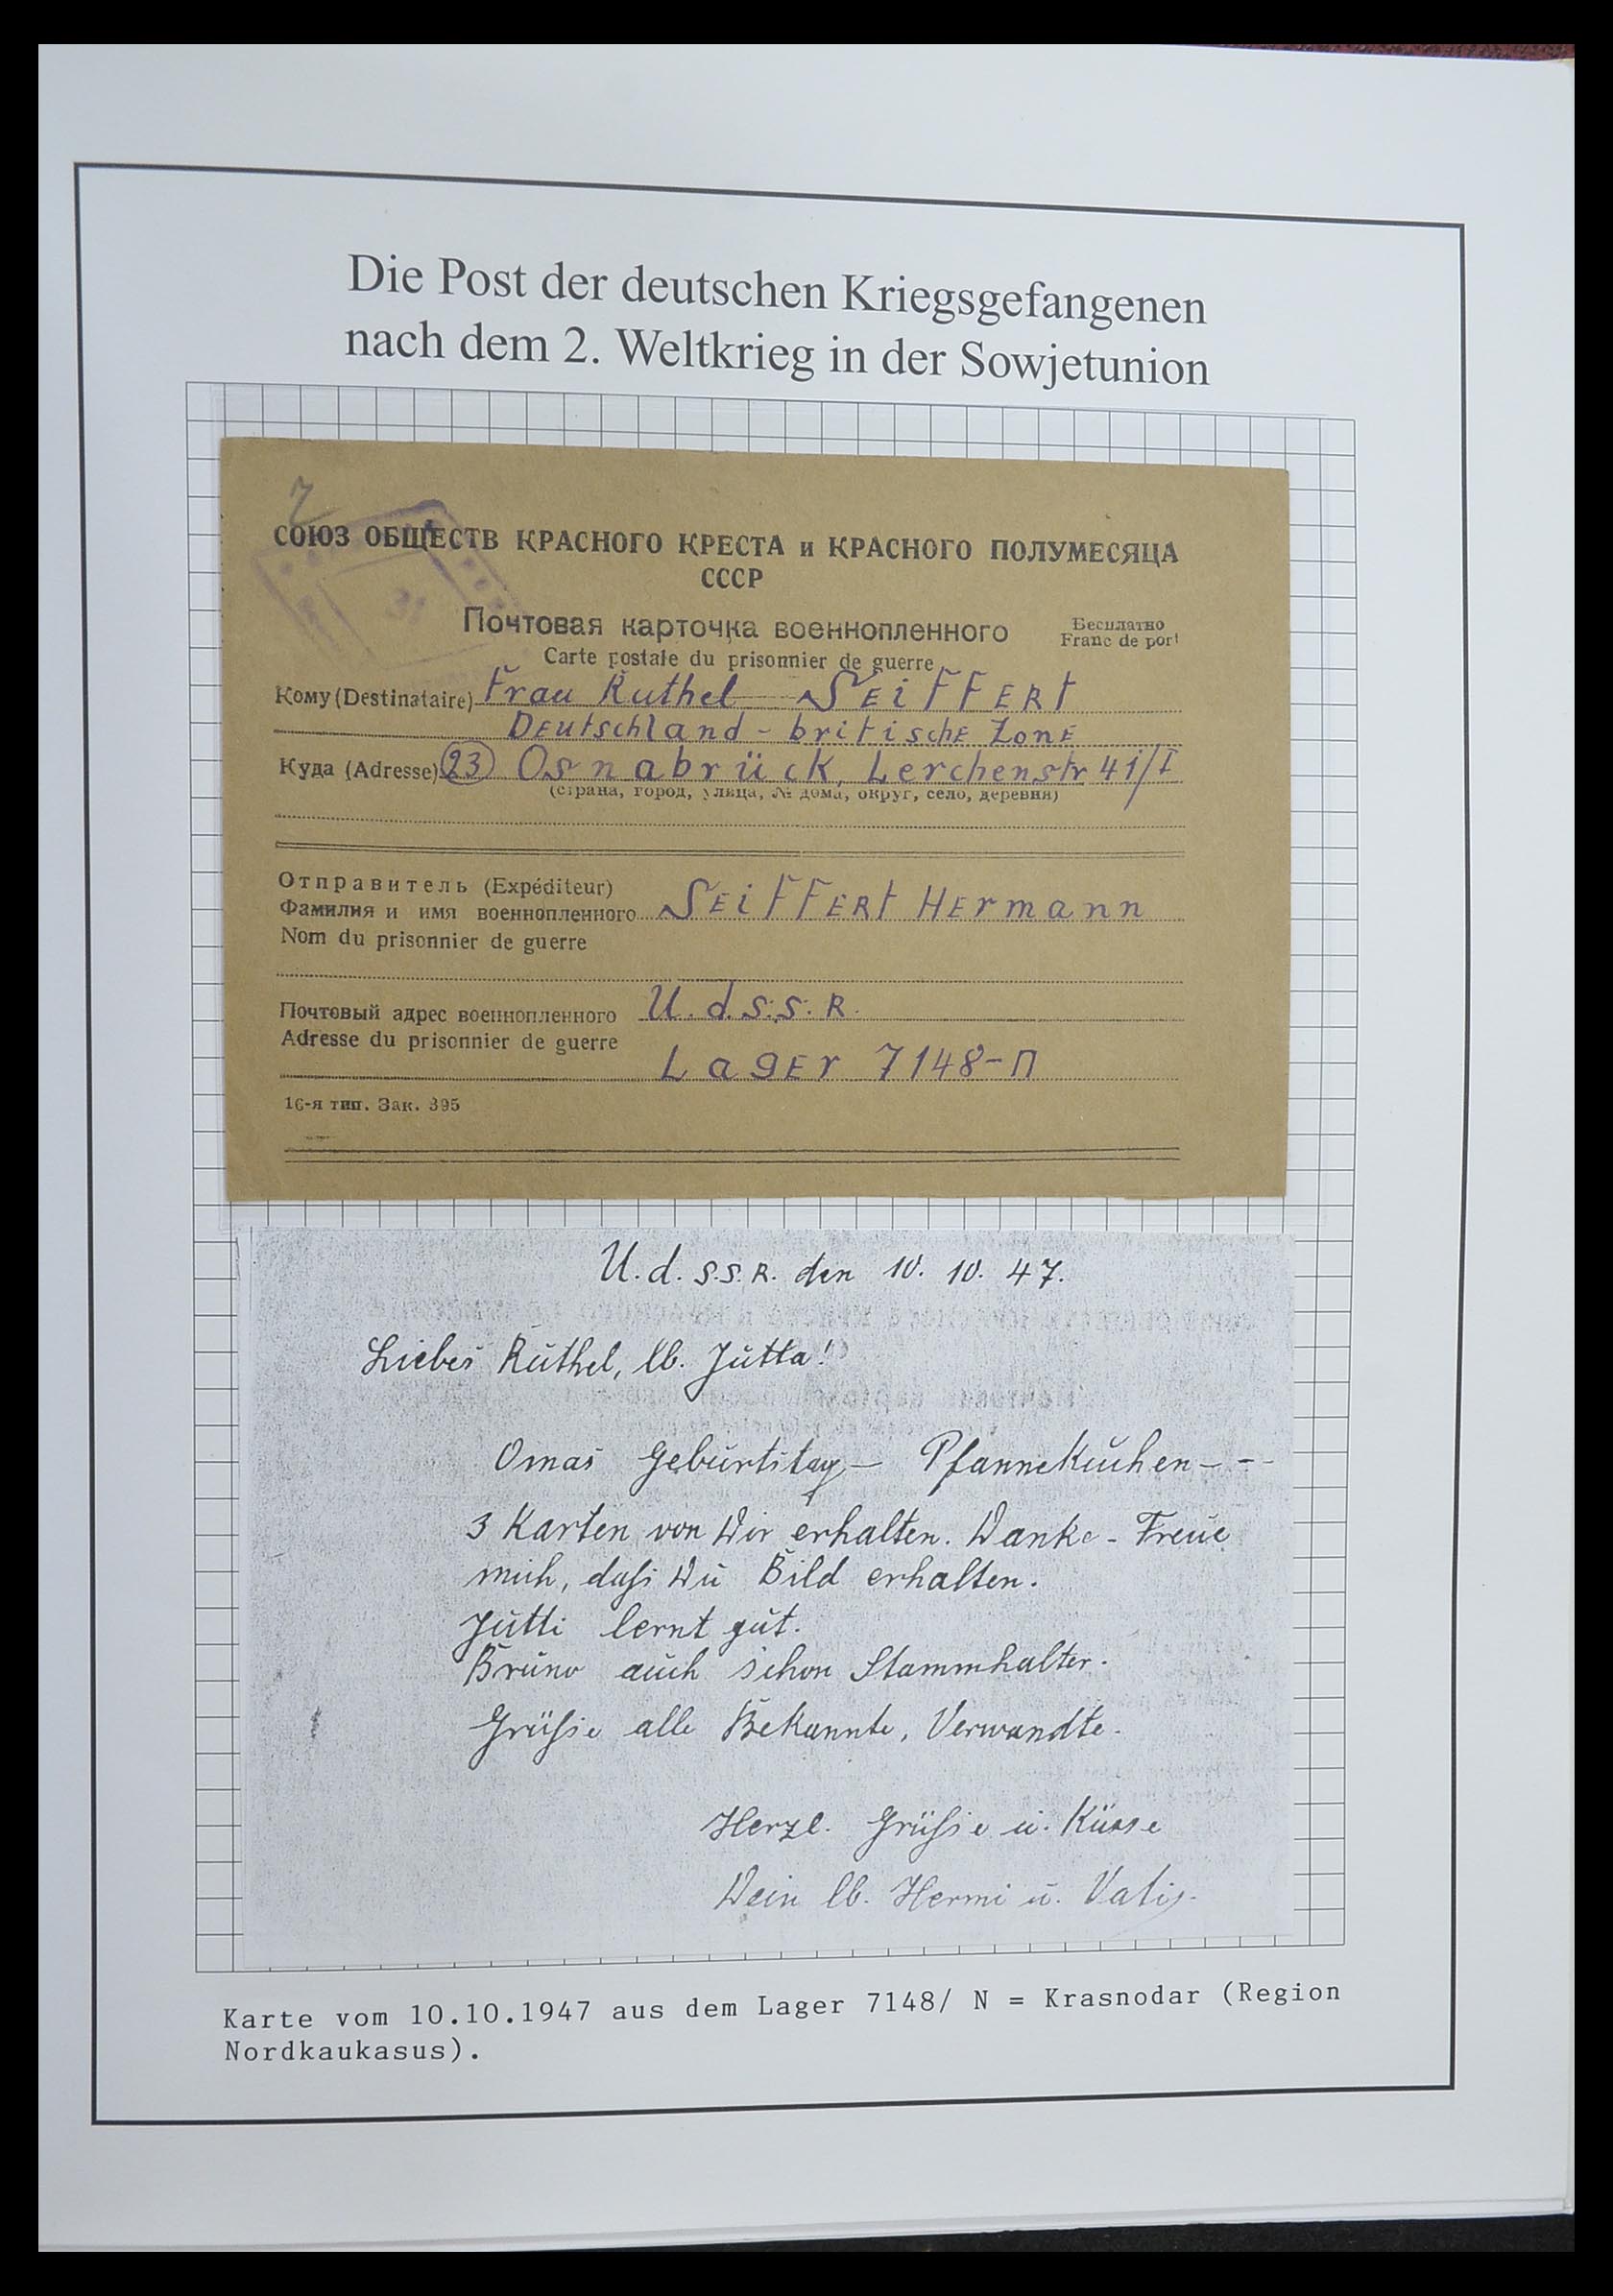 Die Post der deutschen Kriegsgefangenen
nach dem 2. Weltkrieg in der Sowjetunion
СОЮЗ ОБЩЕСТВ КРАСНОГО КРЕСТА и КРАСНОГО ПОЛУМЕСЯЦА
СССР
Почтовая карточка военнопленного
Бесплатно
Franc de port
Carte postale du prisonnier de guerre
Кому (Destinataire) Frau Ruthel SEiFFERt
DEutschland - britischE ZonE
Куда (Adresse) 23 Osnabrück, Lerchenstr 41/I
(страна, город, улица, № дома, округ, село, деревня)
Отправитель (Expéditeur)
Фамилия и имя военнопленного SEiFFERt HErmann
Nom du prisonnier de guerre
Почтовый адрес военнопленного U.d.S.S.R.
Adresse du prisonnier de guerre
LagEr 7148-П
16-я тип. Зак. 395
U.d.S.S.R. den 10. 10. 47.
Liebes Ruthel, lb. Jutta!
Omas Geburtstag - Pfannekuchen - - -
3 Karten von Dir erhalten. Danke - Freue
mich, daß Du Bild erhalten.
Jutti lernt gut.
Bruno auch schon Stammhalter.
Grüße alle Bekannte, Verwandte.
Herzl. Grüße u. Küsse
Dein lb. Hermi u. Vati
Karte vom 10.10.1947 aus dem Lager 7148/ N = Krasnodar (Region
Nordkaukasus).